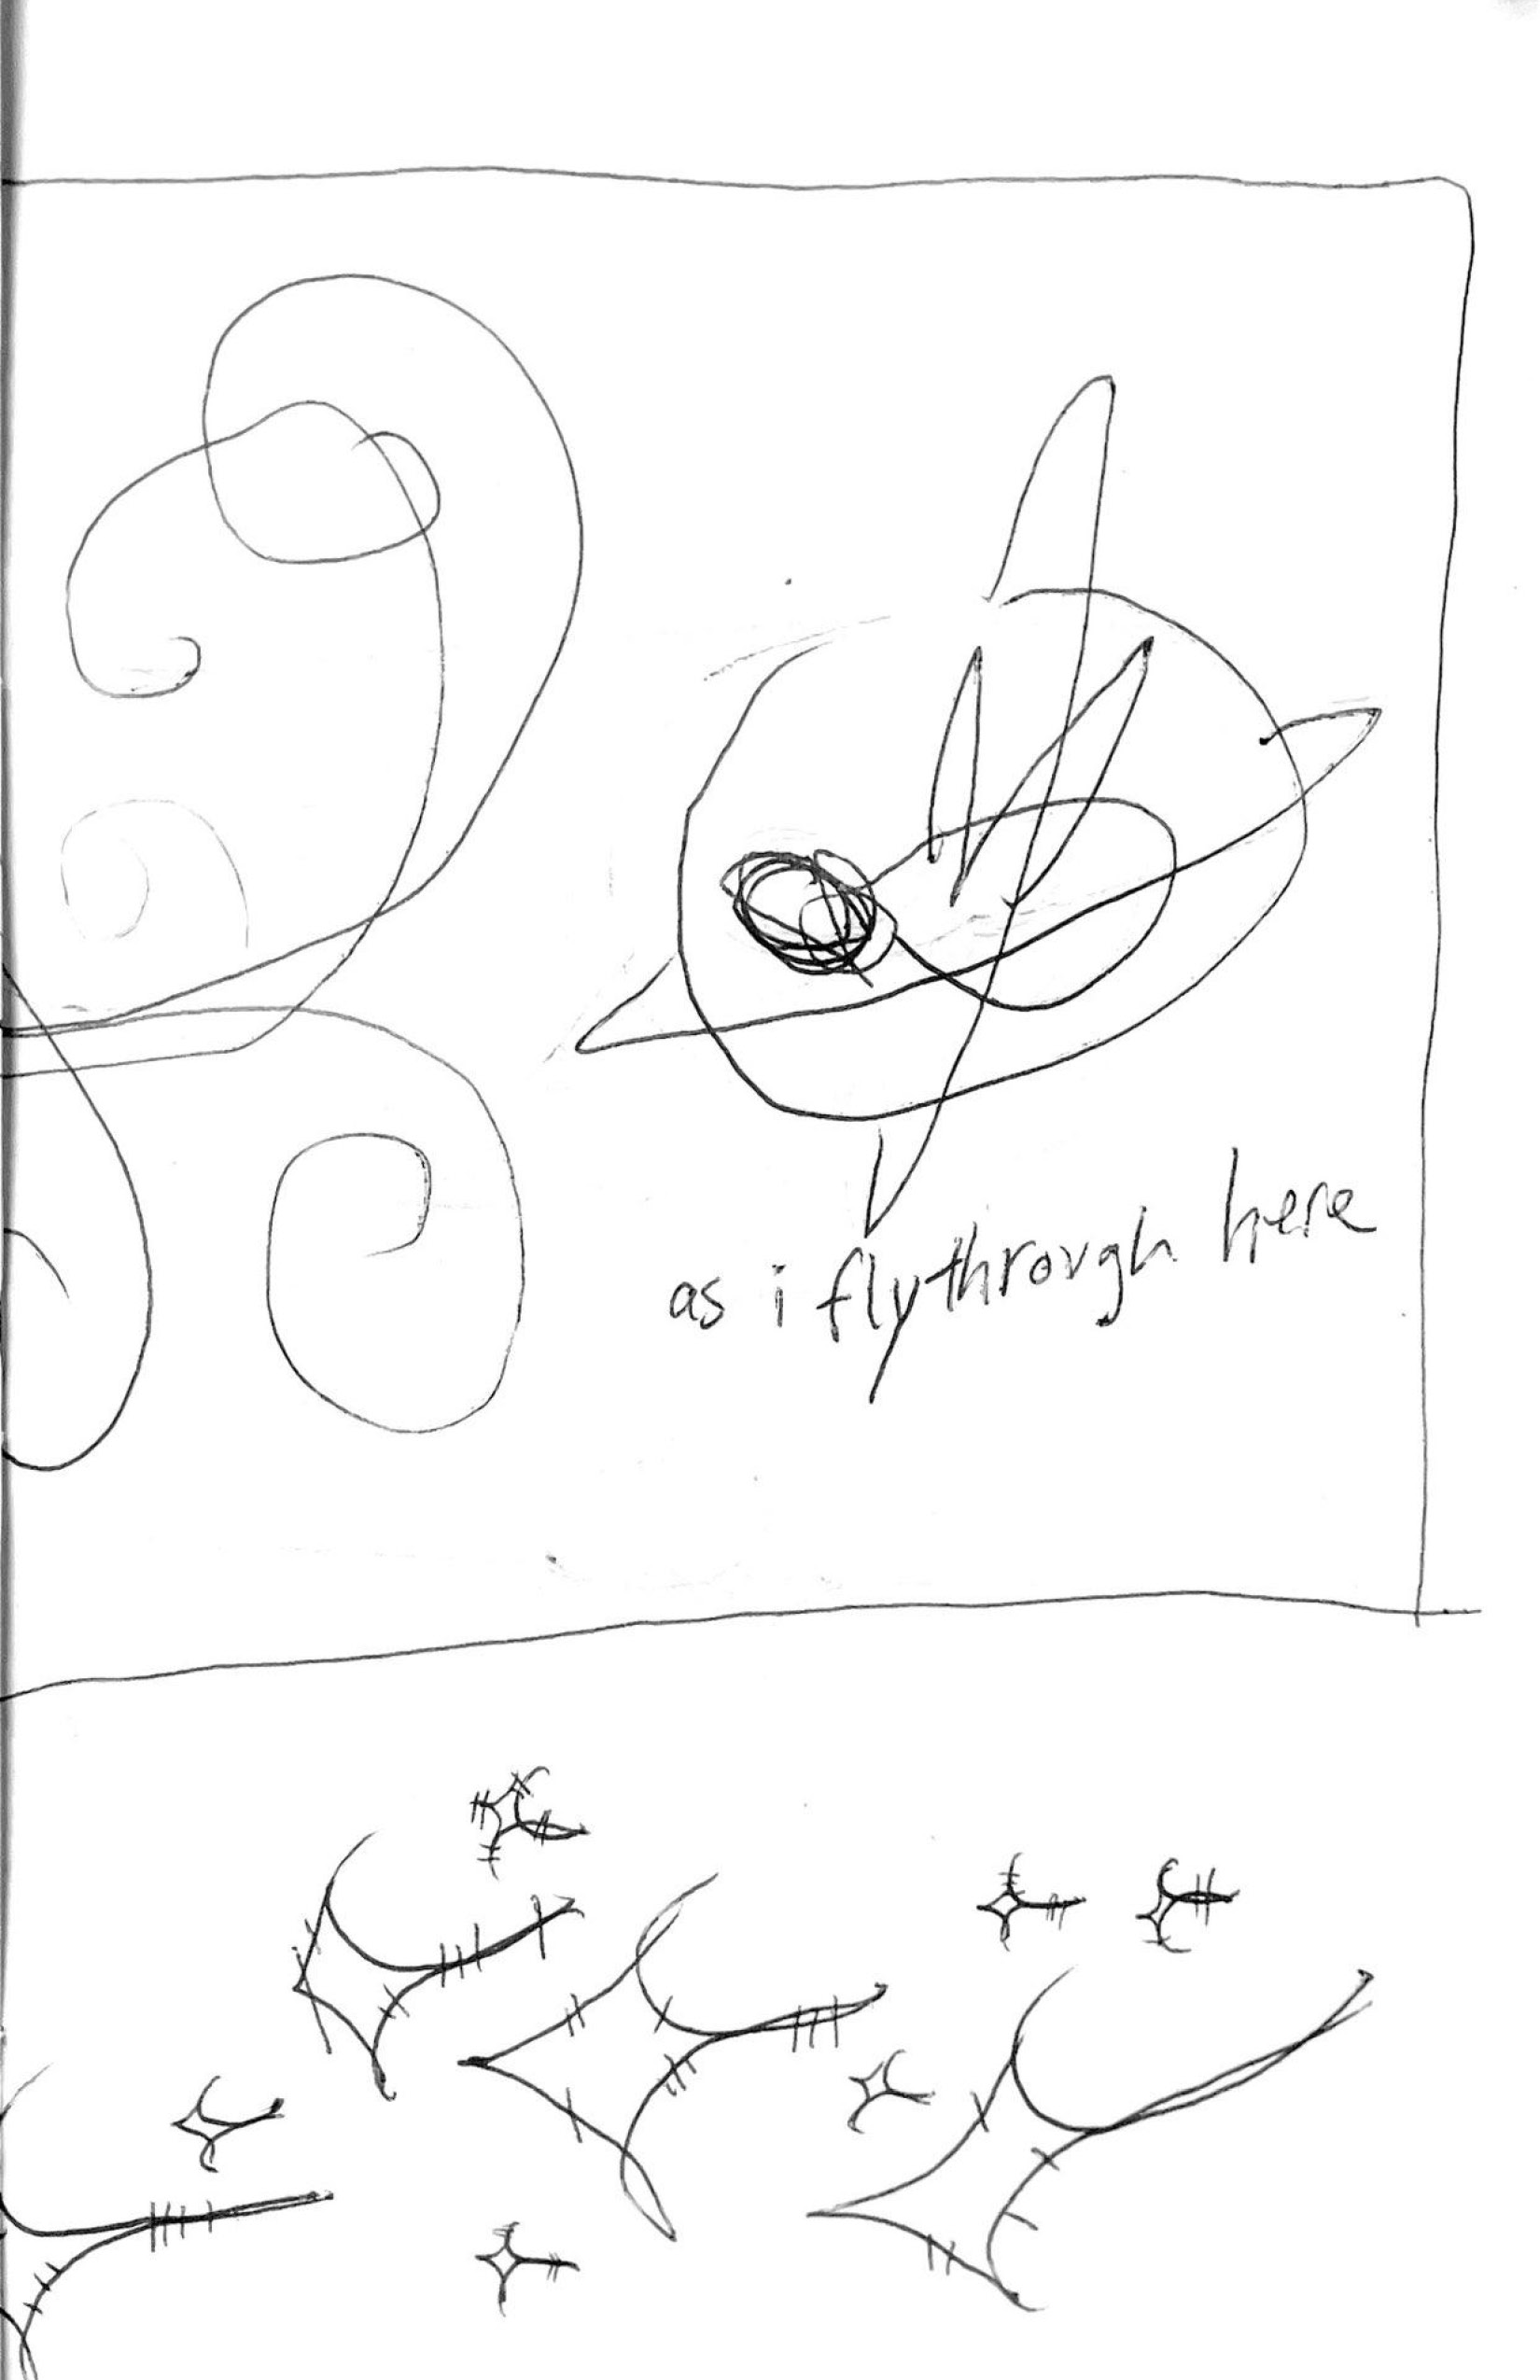 as i fly through here